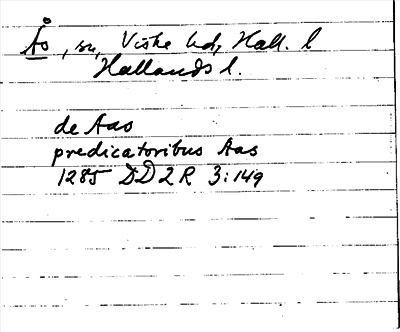 Ås, sn, Viske hd, Hall. l
Hallands l.
de Aas
predicatoribus Aas
1285 DD 2 R 3:149